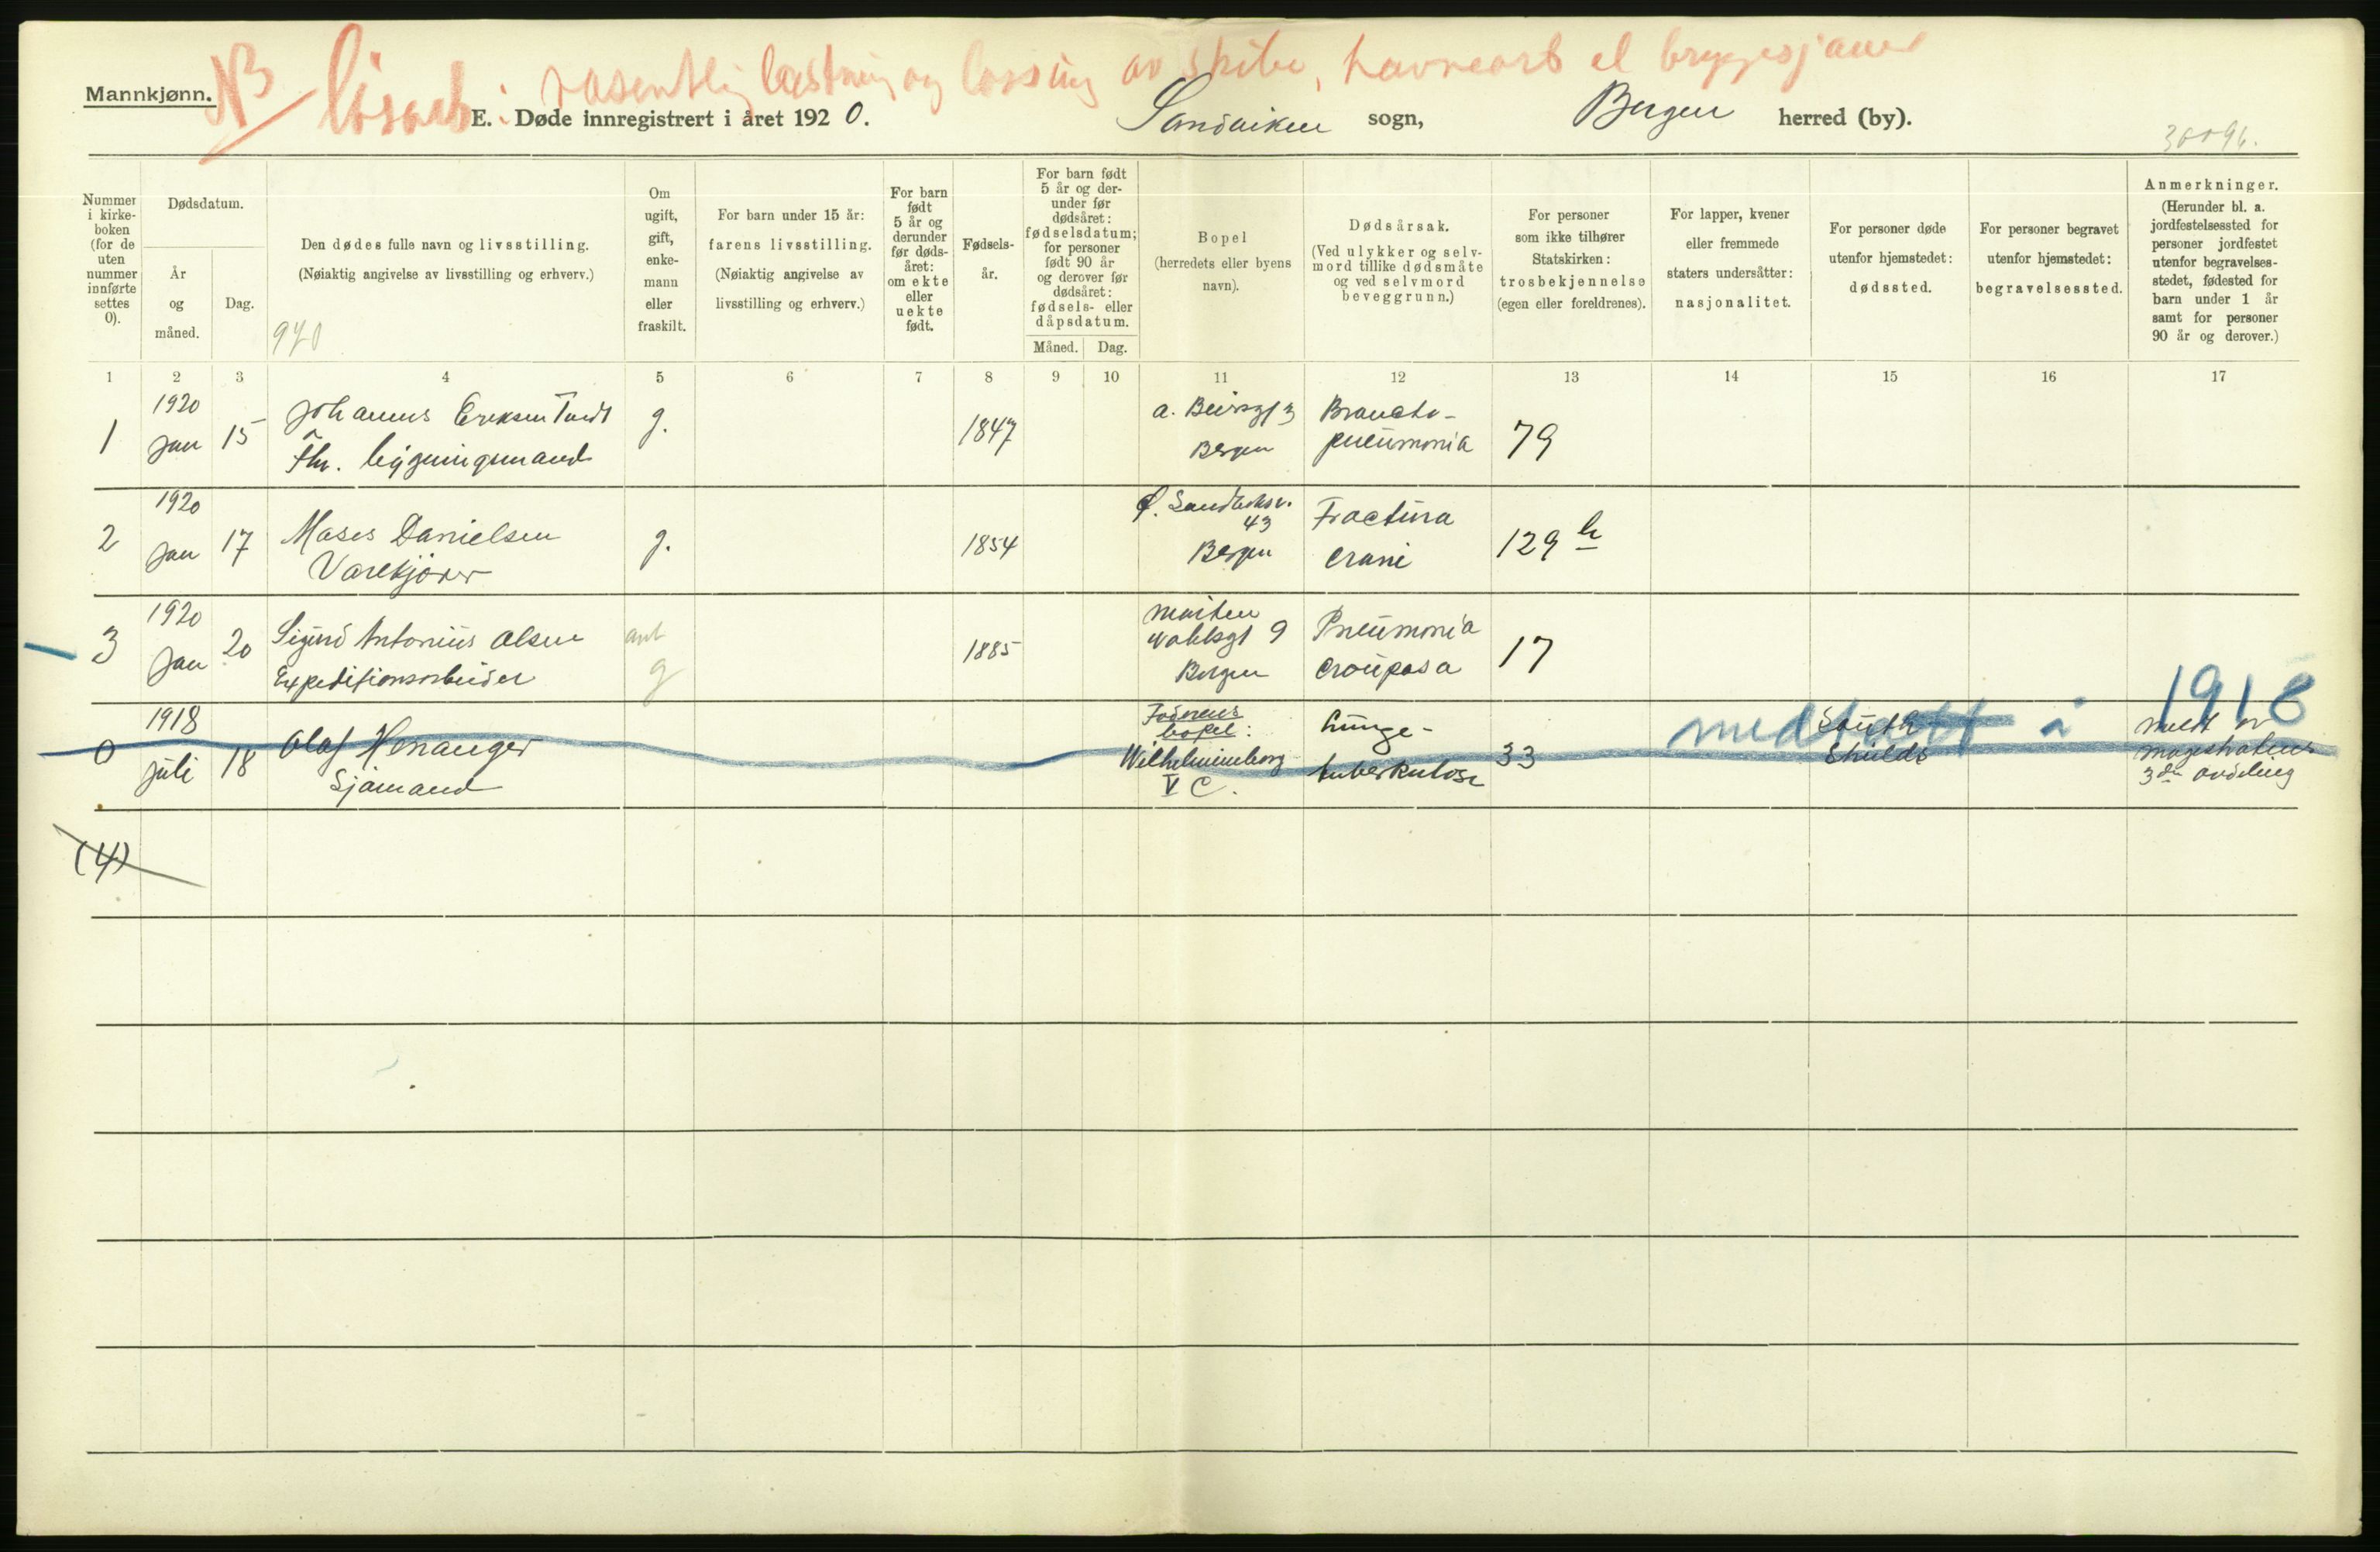 NB løsarb: væsentlig læstning og lossing av skibe, havnearb el bryggesjauer
Mannkjønn.
E. Døde innregistrert i året 1920.
Sandviken sogn,
Bergen herred (by).
Nummer i kirke-boken (for de uten nummer innførte settes 0).
Dødsdatum.
År og måned.
Dag.
Den dødes fulle navn og livsstilling.
(Nøiaktig angivelse av livsstilling og erhverv.)
970
Om ugift, gift, enke-mann eller fraskilt.
For barn under 15 år:
farens livsstilling.
(Nøiaktig angivelse av livsstilling og erhverv.)
For barn født 5 år og derunder før døds-året: om ekte eller uekte født.
Fødsels-år.
For barn født 5 år og der-under før dødsåret: fødselsdatum; for personer født 90 år og derover før dødsåret: fødsels- eller dåpsdatum.
Måned. Dag.
Bopel
(herredets eller byens navn).
Dødsårsak.
(Ved ulykker og selv-mord tillike dødsmåte og ved selvmord beveggrunn.)
For personer som ikke tilhører Statskirken: trosbekjennelse (egen eller foreldrenes).
For lapper, kvener eller fremmede staters undersåtter: nasjonalitet.
For personer døde utenfor hjemstedet: dødssted.
For personer begravet utenfor hjemstedet: begravelsessted.
Anmerkninger.
(Herunder bl. a. jordfestelsessted for personer jordfestet utenfor begravelses-stedet, fødested for barn under 1 år samt for personer 90 år og derover.)
1 2 3 4 5 6 7 8 9 10 11 12 13 14 15 16 17
1
1920
Jan 15
Johannes Eriksen
Fhv. bygningsmand
g.
1847
Bergen
Broncho-
pneumonia
79
2
1920
Jan 17
Moses Danielsen
g.
1854
Ø. Sandviksv.
43
Bergen
Fractura
crani
129 b
3
1920
Jan 20
Sigurd Antonius Olsen
Expeditionsarbeider
ant
g
1885
9
Bergen
Pneumonia
crouposa
17
0
1918
juli 18
Olaf Hosanger
Sjømand
bopel:
Wilhelmineborg
V C.
Lunge-
tuberkulose
33
medtatt i 1918
South
Shields
meldt av
magistratens
3die avdeling
(4)